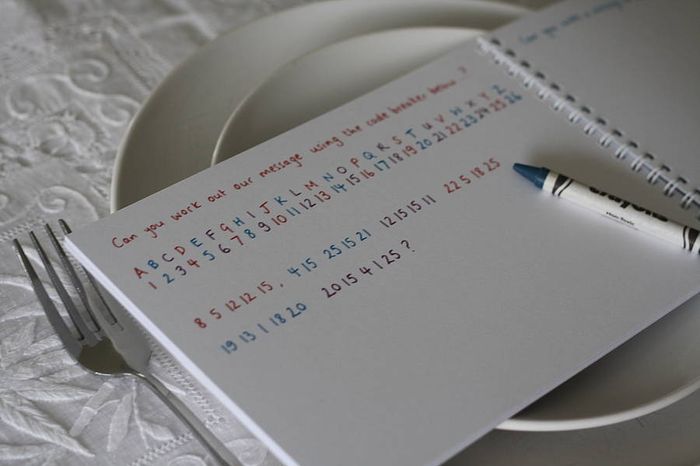 Can you work out our message using the code breaker below ?
A B C D E F G H I J K L M N O P Q R S T U V W X Y Z
1 2 3 4 5 6 7 8 9 10 11 12 13 14 15 16 17 18 19 20 21 22 23 24 25 26
8 5 12 12 15 , 4 15 25 15 21 12 15 15 11 22 5 18 25
19 13 1 18 20 20 15 4 1 25 ?
Can you
Crayola